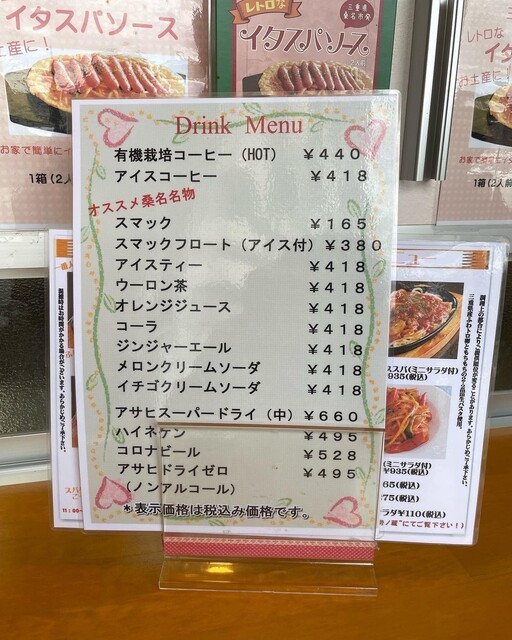 イタスパソース
土産に!
お家で簡単にイ
1箱(2人
レトロな
三重県
桑名市発
イタスパソース
レトロな
お土産に!
1箱(2人前
Drink Menu
有機栽培コーヒー(HOT) ¥440
アイスコーヒー ¥418
オススメ桑名名物
スマック ¥165
スマックフロート(アイス付) ¥380
アイスティー ¥418
ウーロン茶 ¥418
オレンジジュース ¥418
コーラ ¥418
ジンジャーエール ¥418
メロンクリームソーダ ¥418
イチゴクリームソーダ ¥418
アサヒスーパードライ(中) ¥660
ハイネケン ¥495
コロナビール ¥528
アサヒドライゼロ ¥495
(ノンアルコール)
*表示価格は税込み価格です。
スパ(ミニサラダ付)
935(税込)
(ミニサラダ付)
¥935(税込)
65(税込)
275(税込)
ラダ¥110(税込)
にてご覧下さい!)